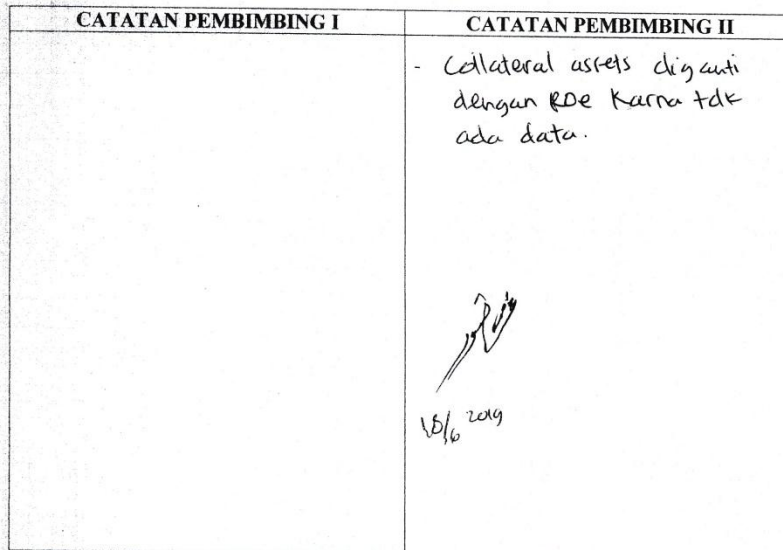 CATATAN PEMBIMBING I
CATATAN PEMBIMBING II
- Collateral assets diganti
dengan ROe Karna tdk
ada data.
18/6 2019